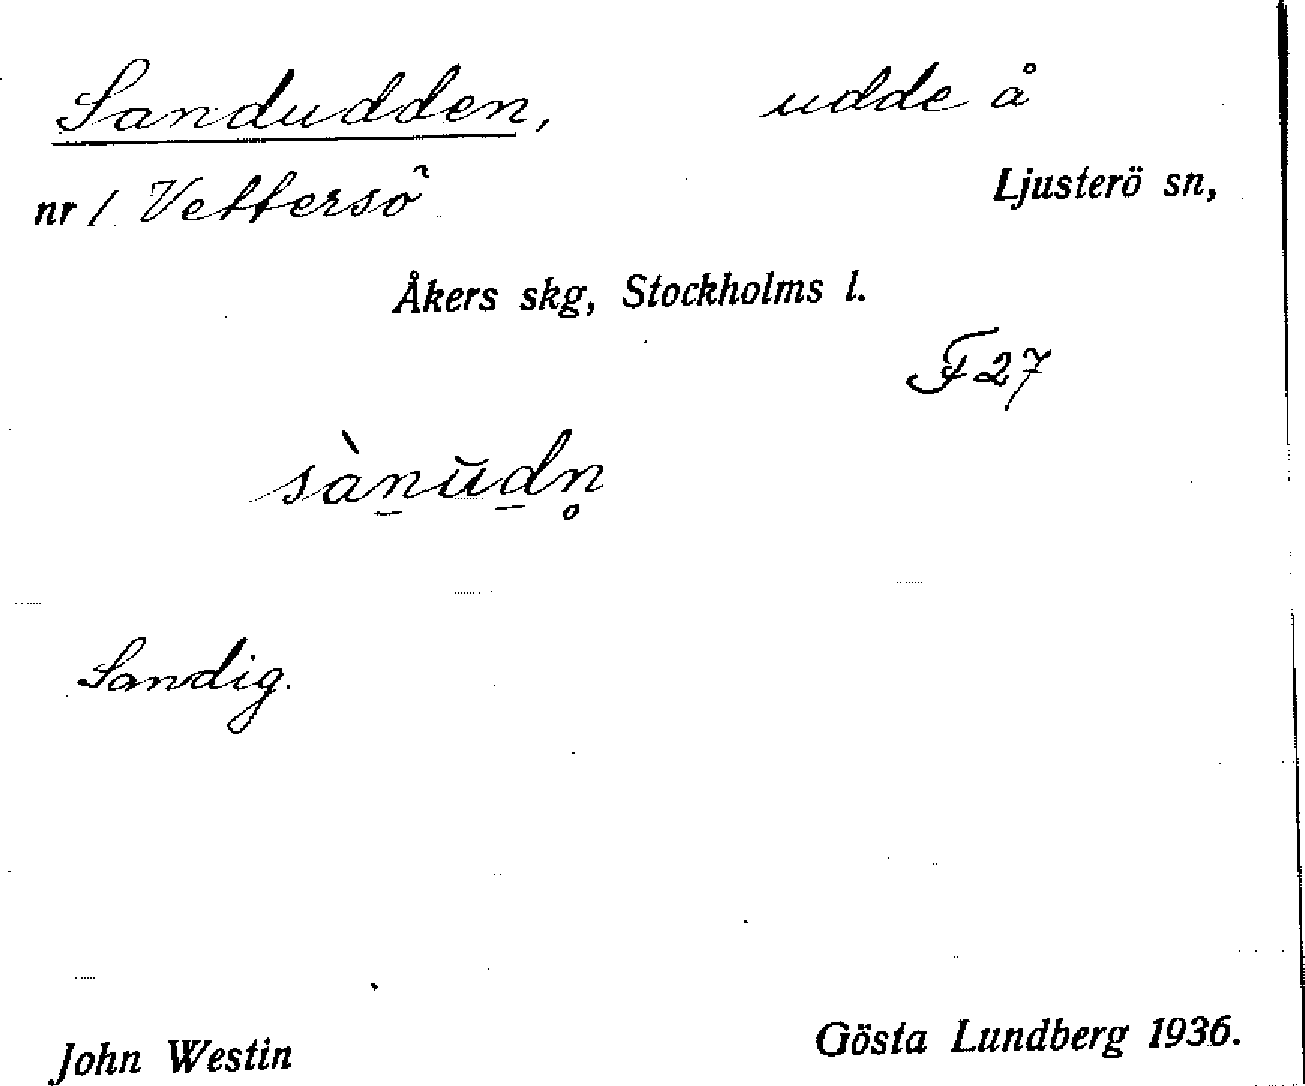 Sandudden, udde å
nr 1 Vettersö Ljusterö sn,
Åkers skg, Stockholms l.
F 27
sàn̠ūd̠n̥
Sandig.
John Westin Gösta Lundberg 1936.